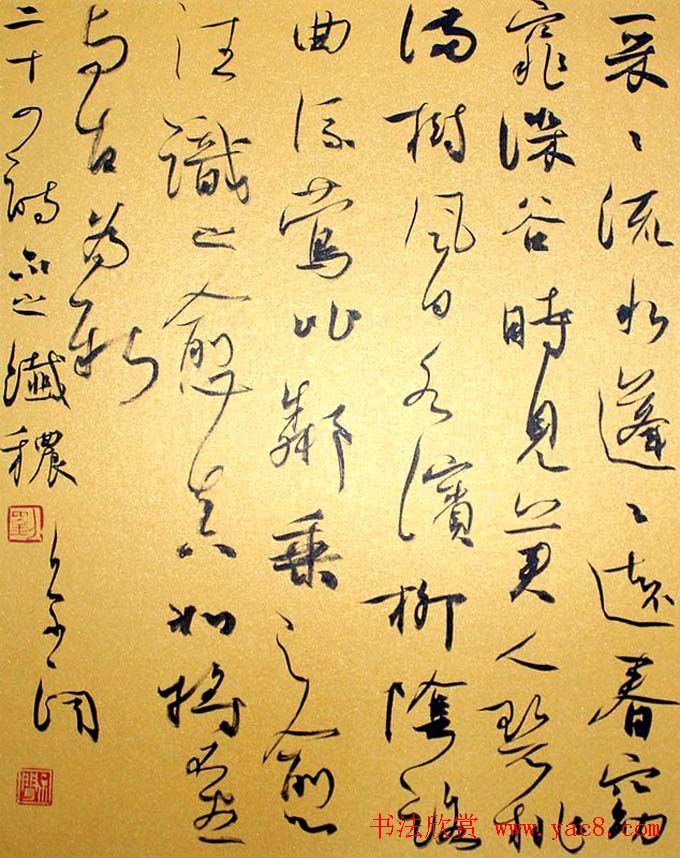 采〻流水蓬〻遠春窈
窕深谷時見美人碧桃
滿樹風日水濱柳陰路
曲流鶯比鄰乘之愈
往識之愈真如將不盡
與古為新
二十四詩品之纖穠
书法欣赏 www.yac8.com